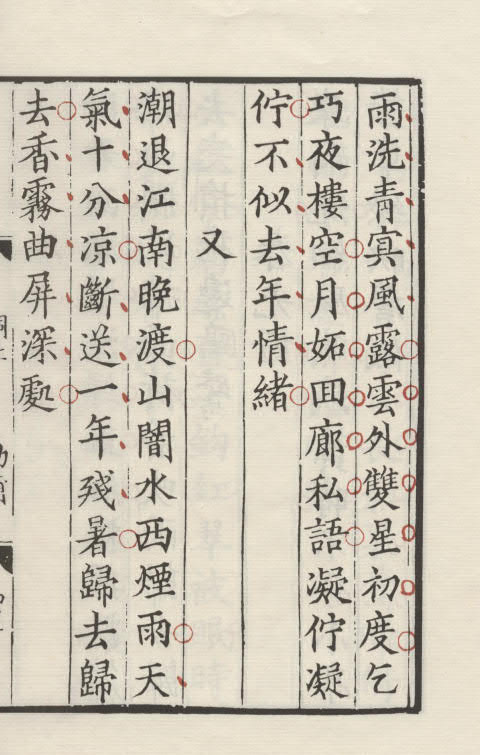 雨洗青㝠風露雲外雙星初度乞
巧夜樓空月妬囬廊私語凝佇凝
佇不似去年情緒
又
潮退江南晩渡山闇水西煙雨天
氣十分凉斷送一年殘暑歸去歸
去香霧曲屏深處